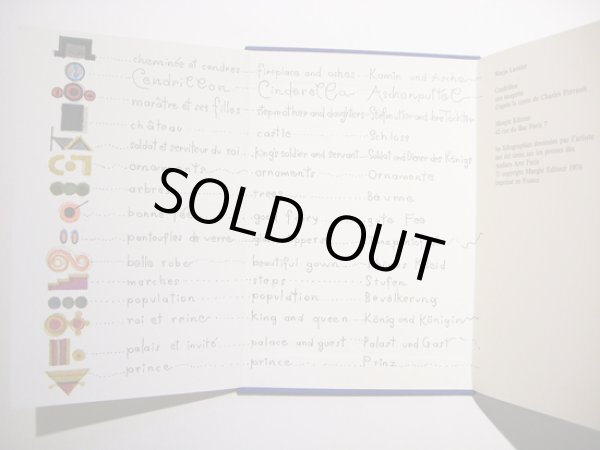 cheminée et cendres fireplace and ashes Kamin und Asche
Cendrillon Cinderella Aschenputtel
marâtre et ses filles stepmother and daughters Stiefmutter und
château castle Schloss
soldat et serviteur du roi king's soldier and servant Soldat und Diener des Königs
ornaments ornaments Ornamente
arbres trees Bäume
bonne fée good fairy gute Fee
pantoufles de verre
belle robe beautiful gown Kleid
marches steps Stufen
population population Bevölkerung
roi et reine king and queen König und Königin
palais et invité palace and guest Palast und Gast
prince prince Prinz
SOLD OUT
Warja Lavater
Cendrillon
une imagerie
d'après le conte de Charles Perrault
Maeght Editeur
42 rue du Bac Paris 7
les lithographies dessinées par l'artiste
ont été tirées sur les presses des
Ateliers Arte Paris
© copyright Maeght Editeur 1976
imprimé en France